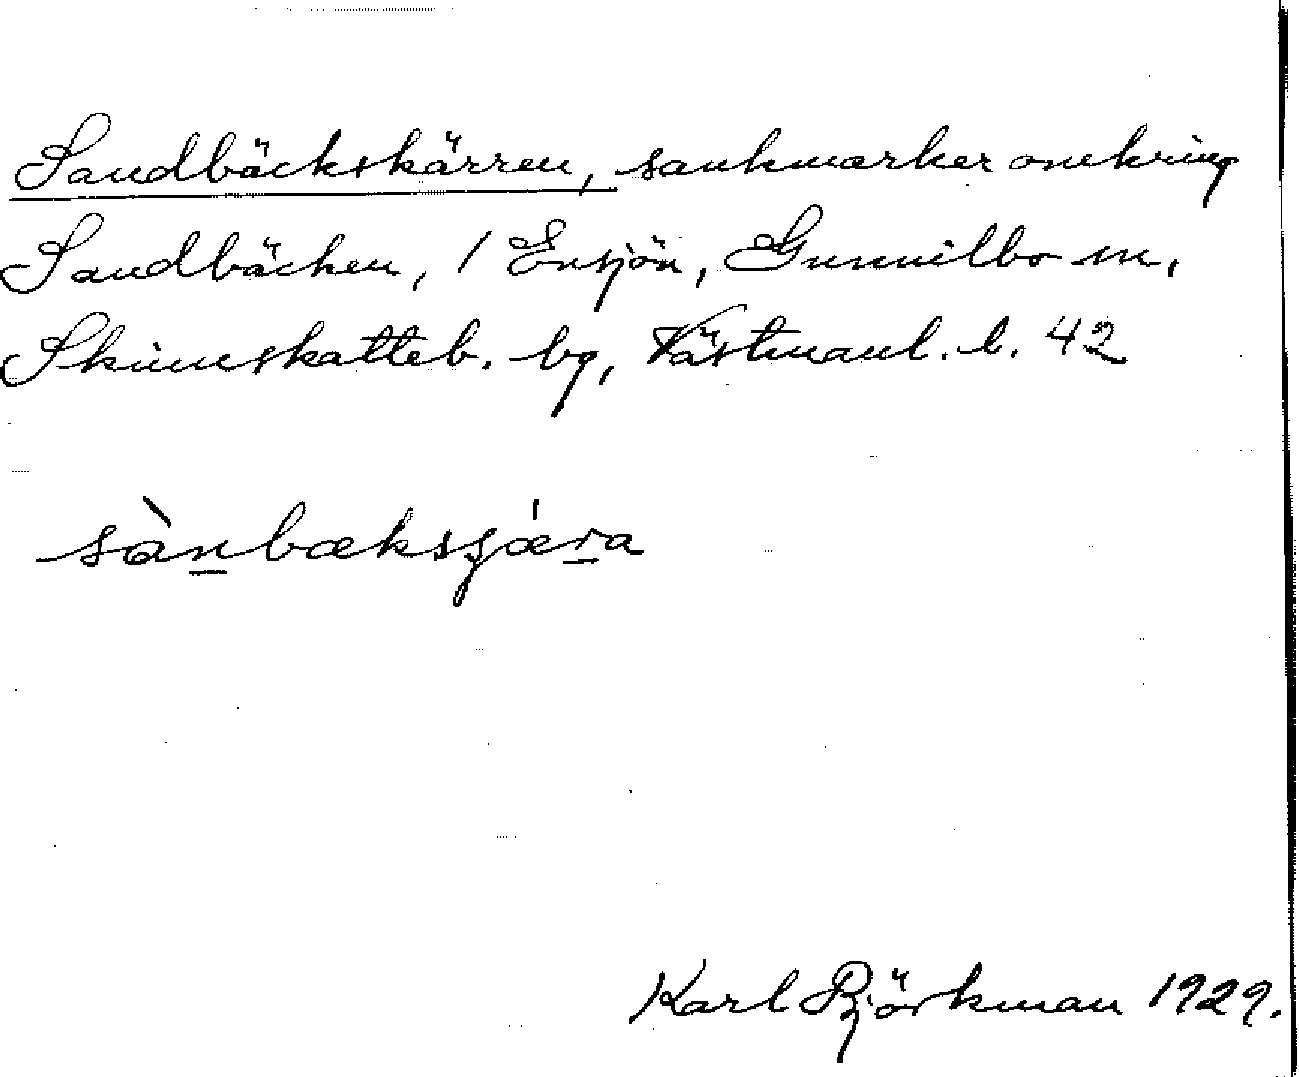 Sandbäckskärren, sankmarker omkring
Sandbäcken, 1 Ensjön, Gunnilbo sn,
Skinnskatteb. bg, Västmanl. l. 42
sànbæksɟæ̀ra
Karl Björkman 1929.